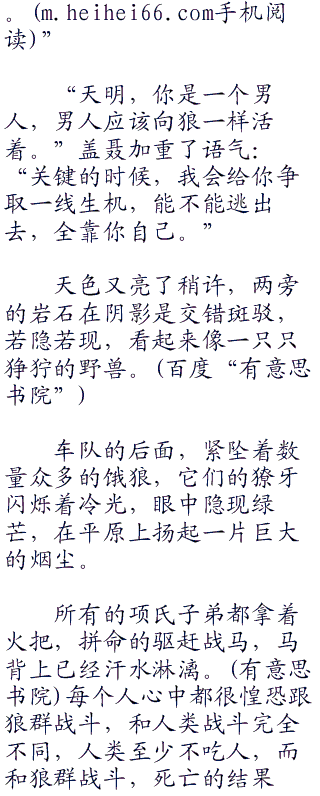 。(m.heihei66.com手机阅
读)”
“天明，你是一个男
人，男人应该向狼一样活
着。”盖聂加重了语气：
“关键的时候，我会给你争
取一线生机，能不能逃出
去，全靠你自己。”
天色又亮了稍许，两旁
的岩石在阴影是交错斑驳，
若隐若现，看起来像一只只
狰狞的野兽。(百度“有意思
书院”)
车队的后面，紧坠着数
量众多的饿狼，它们的獠牙
闪烁着冷光，眼中隐现绿
芒，在平原上扬起一片巨大
的烟尘。
所有的项氏子弟都拿着
火把，拼命的驱赶战马，马
背上已经汗水淋漓。(有意思
书院)每个人心中都很惶恐跟
狼群战斗，和人类战斗完全
不同，人类至少不吃人，而
和狼群战斗，死亡的结果